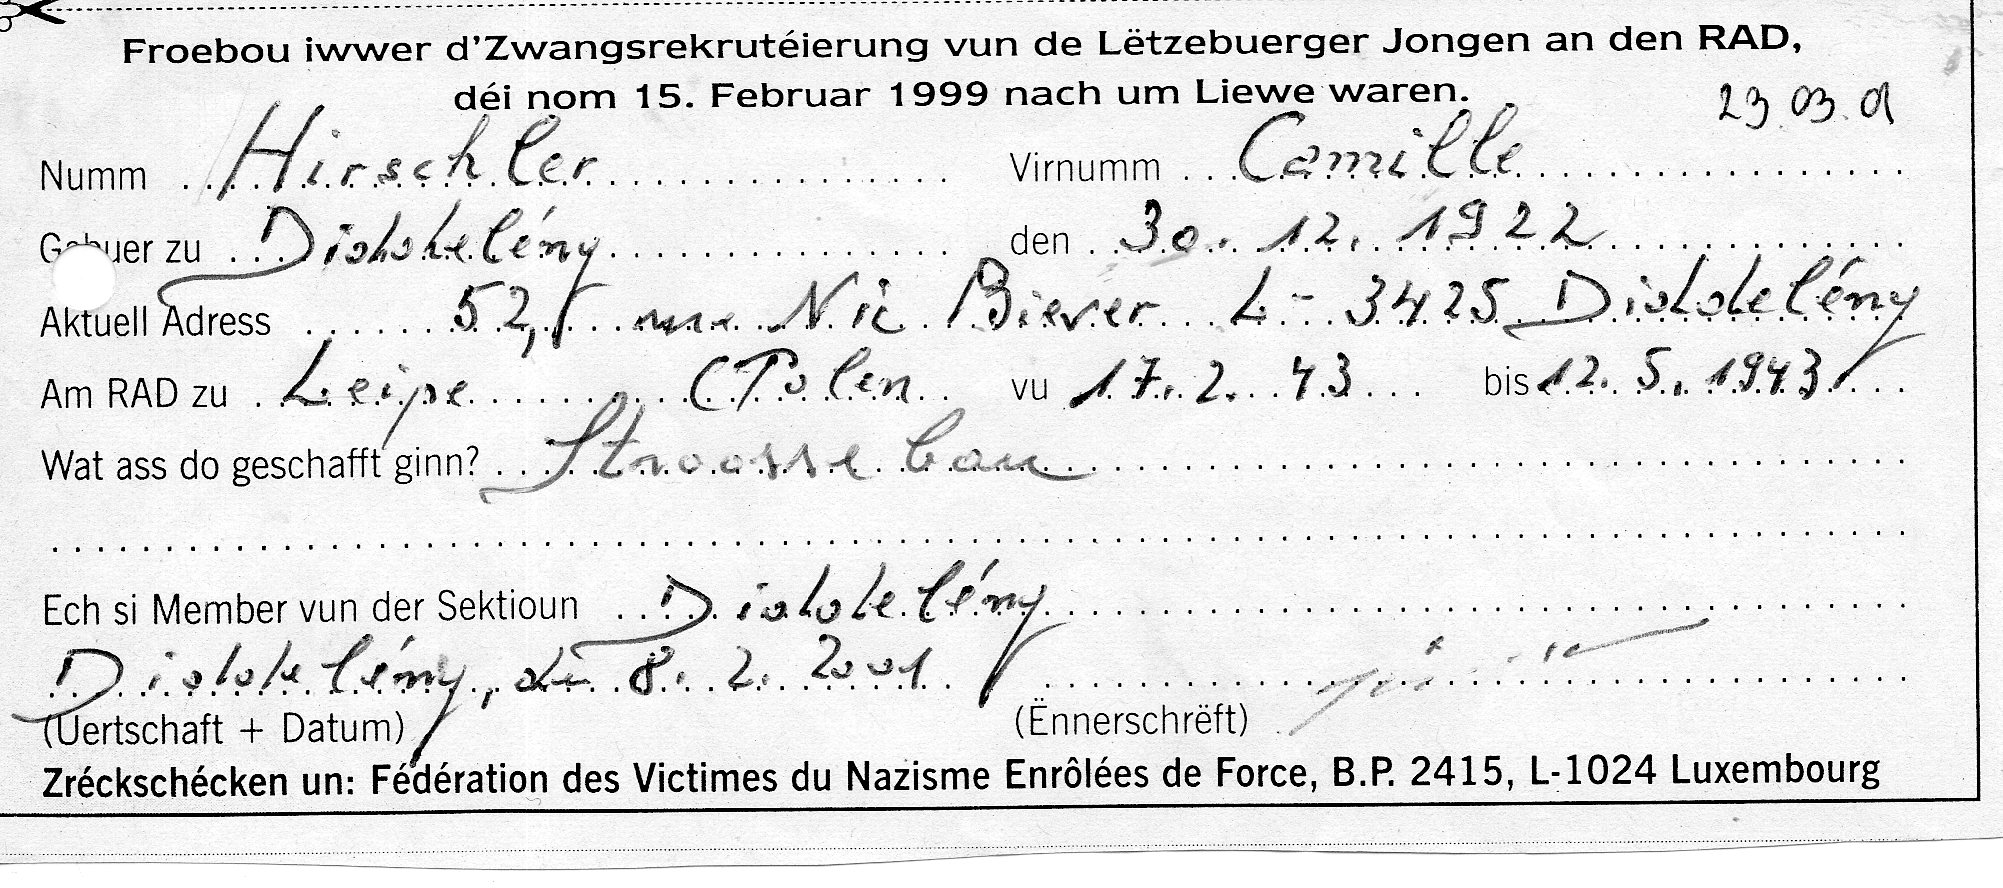 Froebou iwwer d'Zwangsrekrutéierung vun de Lëtzebuerger Jongen an den RAD,
déi nom 15. Februar 1999 nach um Liewe waren.
23.03.01
Numm Hirschler Virnumm Camille
Gebuer zu Diddeléng den 30. 12. 1922
Aktuell Adress 52, rue Nic Biever L-3425 Diddeléng
Am RAD zu Leipe (Polen vu 17. 2. 43 bis 12. 5. 1943
Wat ass do geschafft ginn? Stroossebau
Ech si Member vun der Sektioun Diddeléng
Diddeléng, de 8. 2. 2001
(Uertschaft + Datum) (Ënnerschrëft)
Zréckschécken un: Fédération des Victimes du Nazisme Enrôlées de Force, B.P. 2415, L-1024 Luxembourg